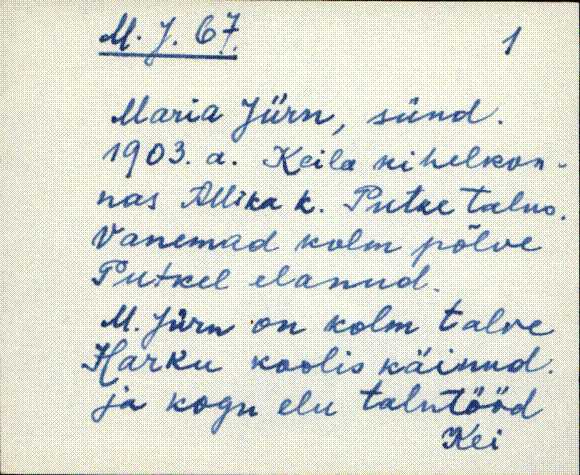 M. J. 67. 1
Maria Jürn, sünd.
1903. a. Keila kihelkon-
nas Allika k. Putke talus.
Vanemad kolm põlve
Putkel elanud.
M. Jürn on kolm talve
Harku koolis käinud.
ja kogu elu talutööd
Kei